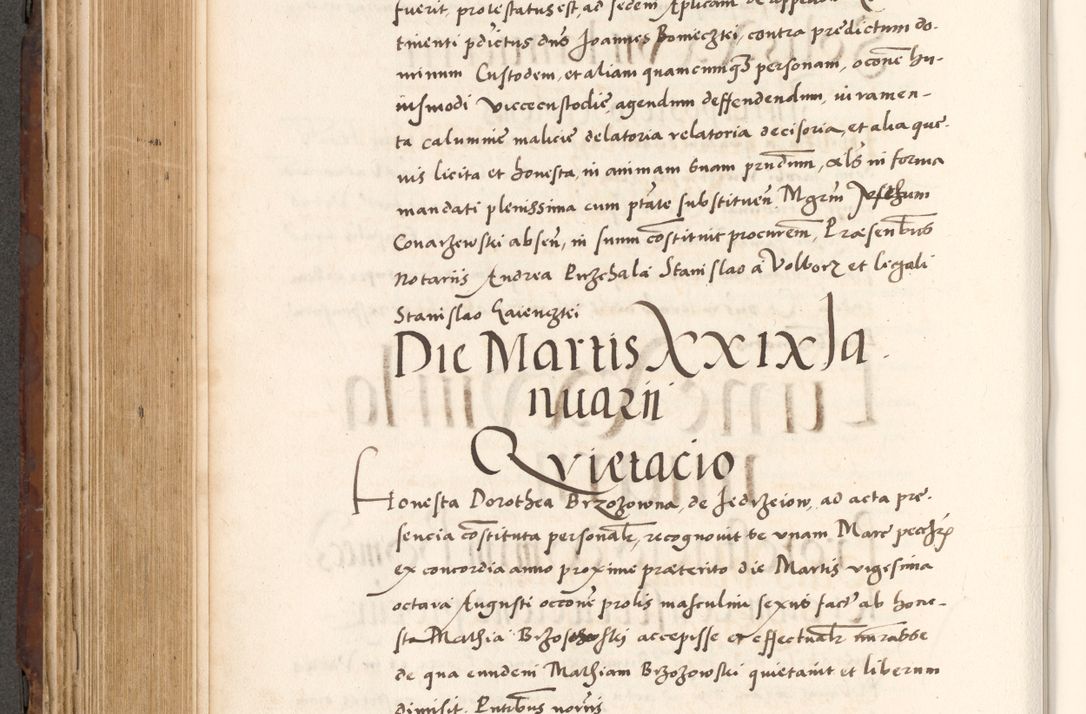 fuerit, protestatus est, ad sedem Aplicam de
tinenti pdictus dns Joannes Bomecztei, contra predictum do-
minum Custodem, et aliam quamcunqz personam, occone hu-
iusmodi viccecustodie, agendum deffendendum, iuramen-
ta calumnie malicie delatoria relatoria decisoria, et alia que-
vis licita et honesta, in animam suam prndum, als in forma
mandati plenissima cum ptate substituen. Mgrm
Conarzewski absen, in suum constituit procurem, Præsentibus
Notariis Andrea Przechala Stanislao a Volborz et legali
Stanislao Gaiencztei
Die Martis XXIX Ja
nuarii
Qvietacio
Honesta Dorothea Brzozowna, de Jedrzeiow, ad acta pre-
sencia constituta personalr, recognovit se unam Marc
ex concordia anno proxime præterito die Martis vigesima
octava Augusti occone prolis masculini sexus fact ab hone-
sto Mathia accepisse et effectualr
de qua eundem Mathiam Brzozowski quietavit et liberum
dimisit. Pntibus